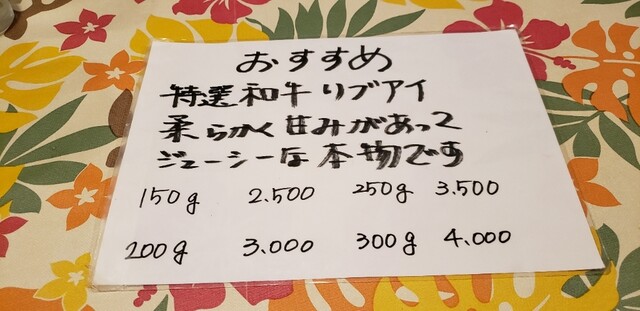 おすすめ
特選和牛リブアイ
柔らかく甘みがあって
ジューシーな本物です
150g 2.500 250g 3.500
200g 3.000 300g 4.000